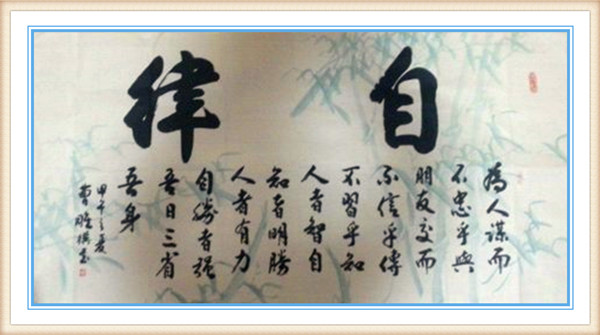 自律
為人謀而
不忠乎與
朋友交而
不信乎傳
不習乎知
人者智自
知者明勝
人者有力
自勝者强
吾日三省
吾身
甲午之
曹